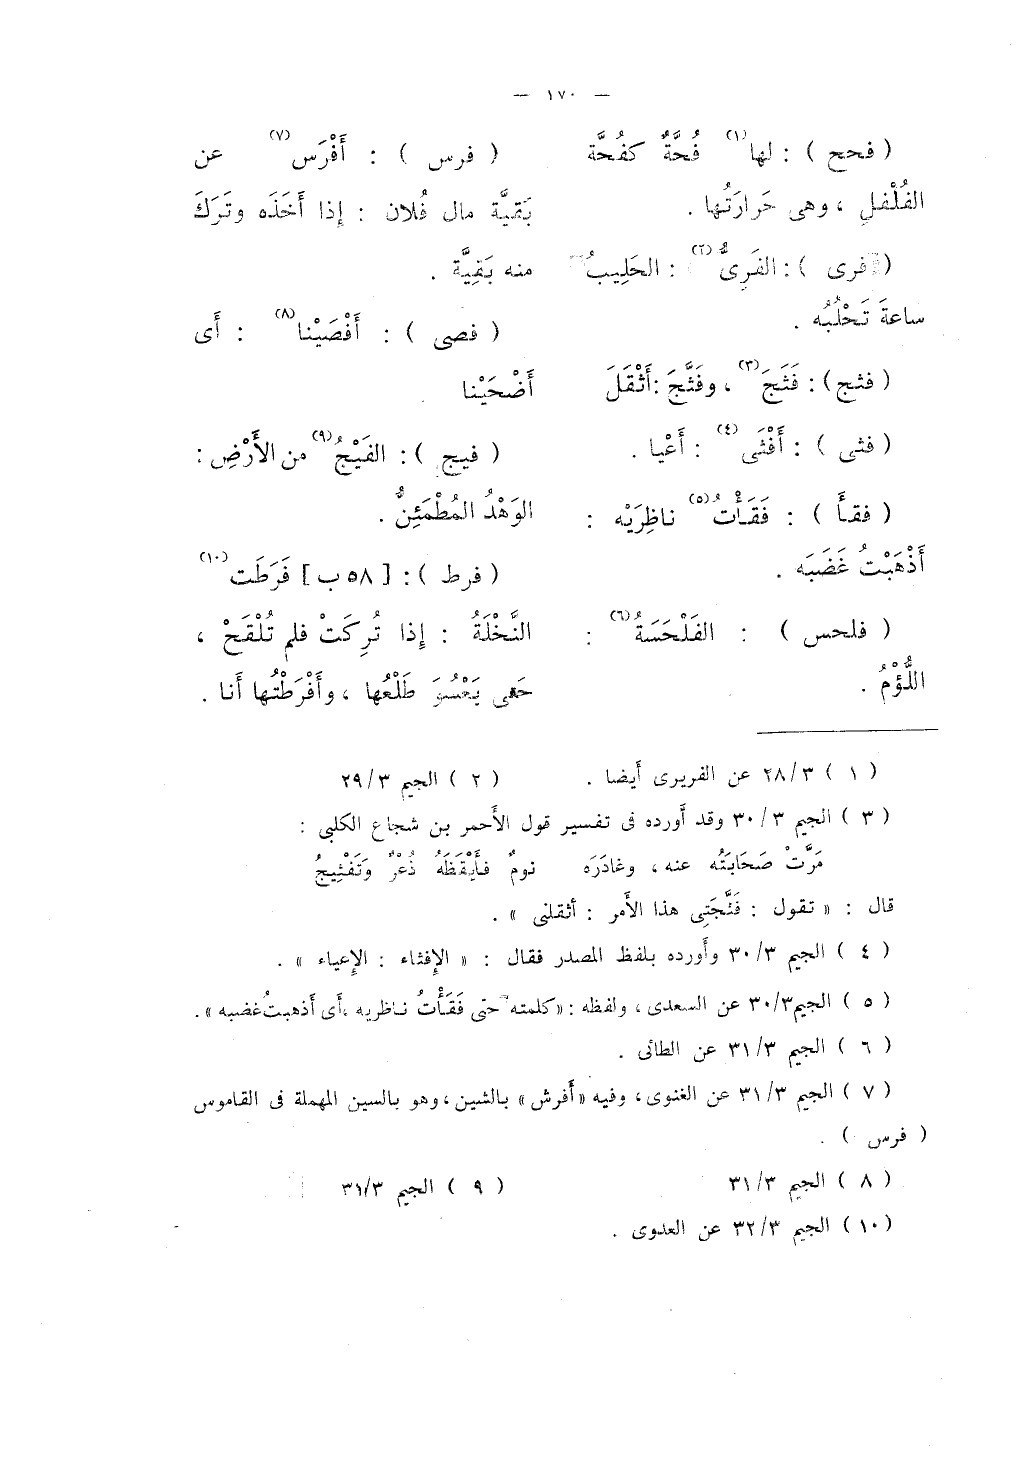 — ١٧٠ —
( فحح ) : لها(١) فُحَّةٌ كفُحَّة
الفُلْفلِ ، وهى حَرارَتُها .
( فرى ) : الفَرِىُّ(٢) : الحَلِيبُ
ساعةَ تَحْلُبُه .
( فثج ) : فَثَجَ(٣) ، وفَثَّجَ : أَثْقَلَ
( فثى ) : أَفْثَى(٤) : أَعْيا .
( فقأ ) : فَقَأْتُ(٥) ناظِرَيْه :
أَذْهَبْتُ غَضَبَه .
( فلحس ) : الفَلْحَسَةُ(٦) :
اللُّؤْمُ .
( فرس ) : أَفْرَس(٧) عن
بَقيَّة مال فُلان : إذا أَخَذَه وتَرَكَ
منه بَقِيَّة .
( فصى ) : أَفْصَيْنا(٨) : أَى
أَضْحَيْنا
( فيج ) : الفَيْجُ(٩) من الأَرْضِ :
الوَهْدُ المُطْمَئِنُّ .
( فرط ) : [ ٥٨ ب ] فَرَطَت(١٠)
النَّخْلَةُ : إذا تُرِكَتْ فلم تُلْقَحْ ،
حتى يَعْسُوَ طَلْعُها ، وأَفْرَطْتُها أنا .
( ١ ) ٢٨/٣ عن الفريرى أَيضا . ( ٢ ) الجيم ٢٩/٣
( ٣ ) الجيم ٣٠/٣ وقد أَورده فى تفسير قول الأَحمر بن شجاع الكلبى :
مَرَّتْ صَحَابَتُه عنه ، وغادَرَه نومٌ فأَيْقَظَهُ ذُعْرٌ وَتَفْثِيجُ
قال : « تقول : فَثَّجَتِى هذا الأَمر : أثقلنى » .
( ٤ ) الجيم ٣٠/٣ وأَورده بلفظ المصدر فقال : « الإِفثاء : الإِعياء » .
( ٥ ) الجيم ٣٠/٣ عن السعدى ، ولفظه : « كلمته حتى فَقَأْتُ ناظريه ، أَى أَذهبتُ غضبه » .
( ٦ ) الجيم ٣١/٣ عن الطائى .
( ٧ ) الجيم ٣١/٣ عن الغنوى ، وفيه « أَفرش » بالشين ، وهو بالسين المهملة فى القاموس
( فرس ) .
( ٨ ) الجيم ٣١/٣ ( ٩ ) الجيم ٣١/٣
( ١٠ ) الجيم ٣٢/٣ عن العدوى .